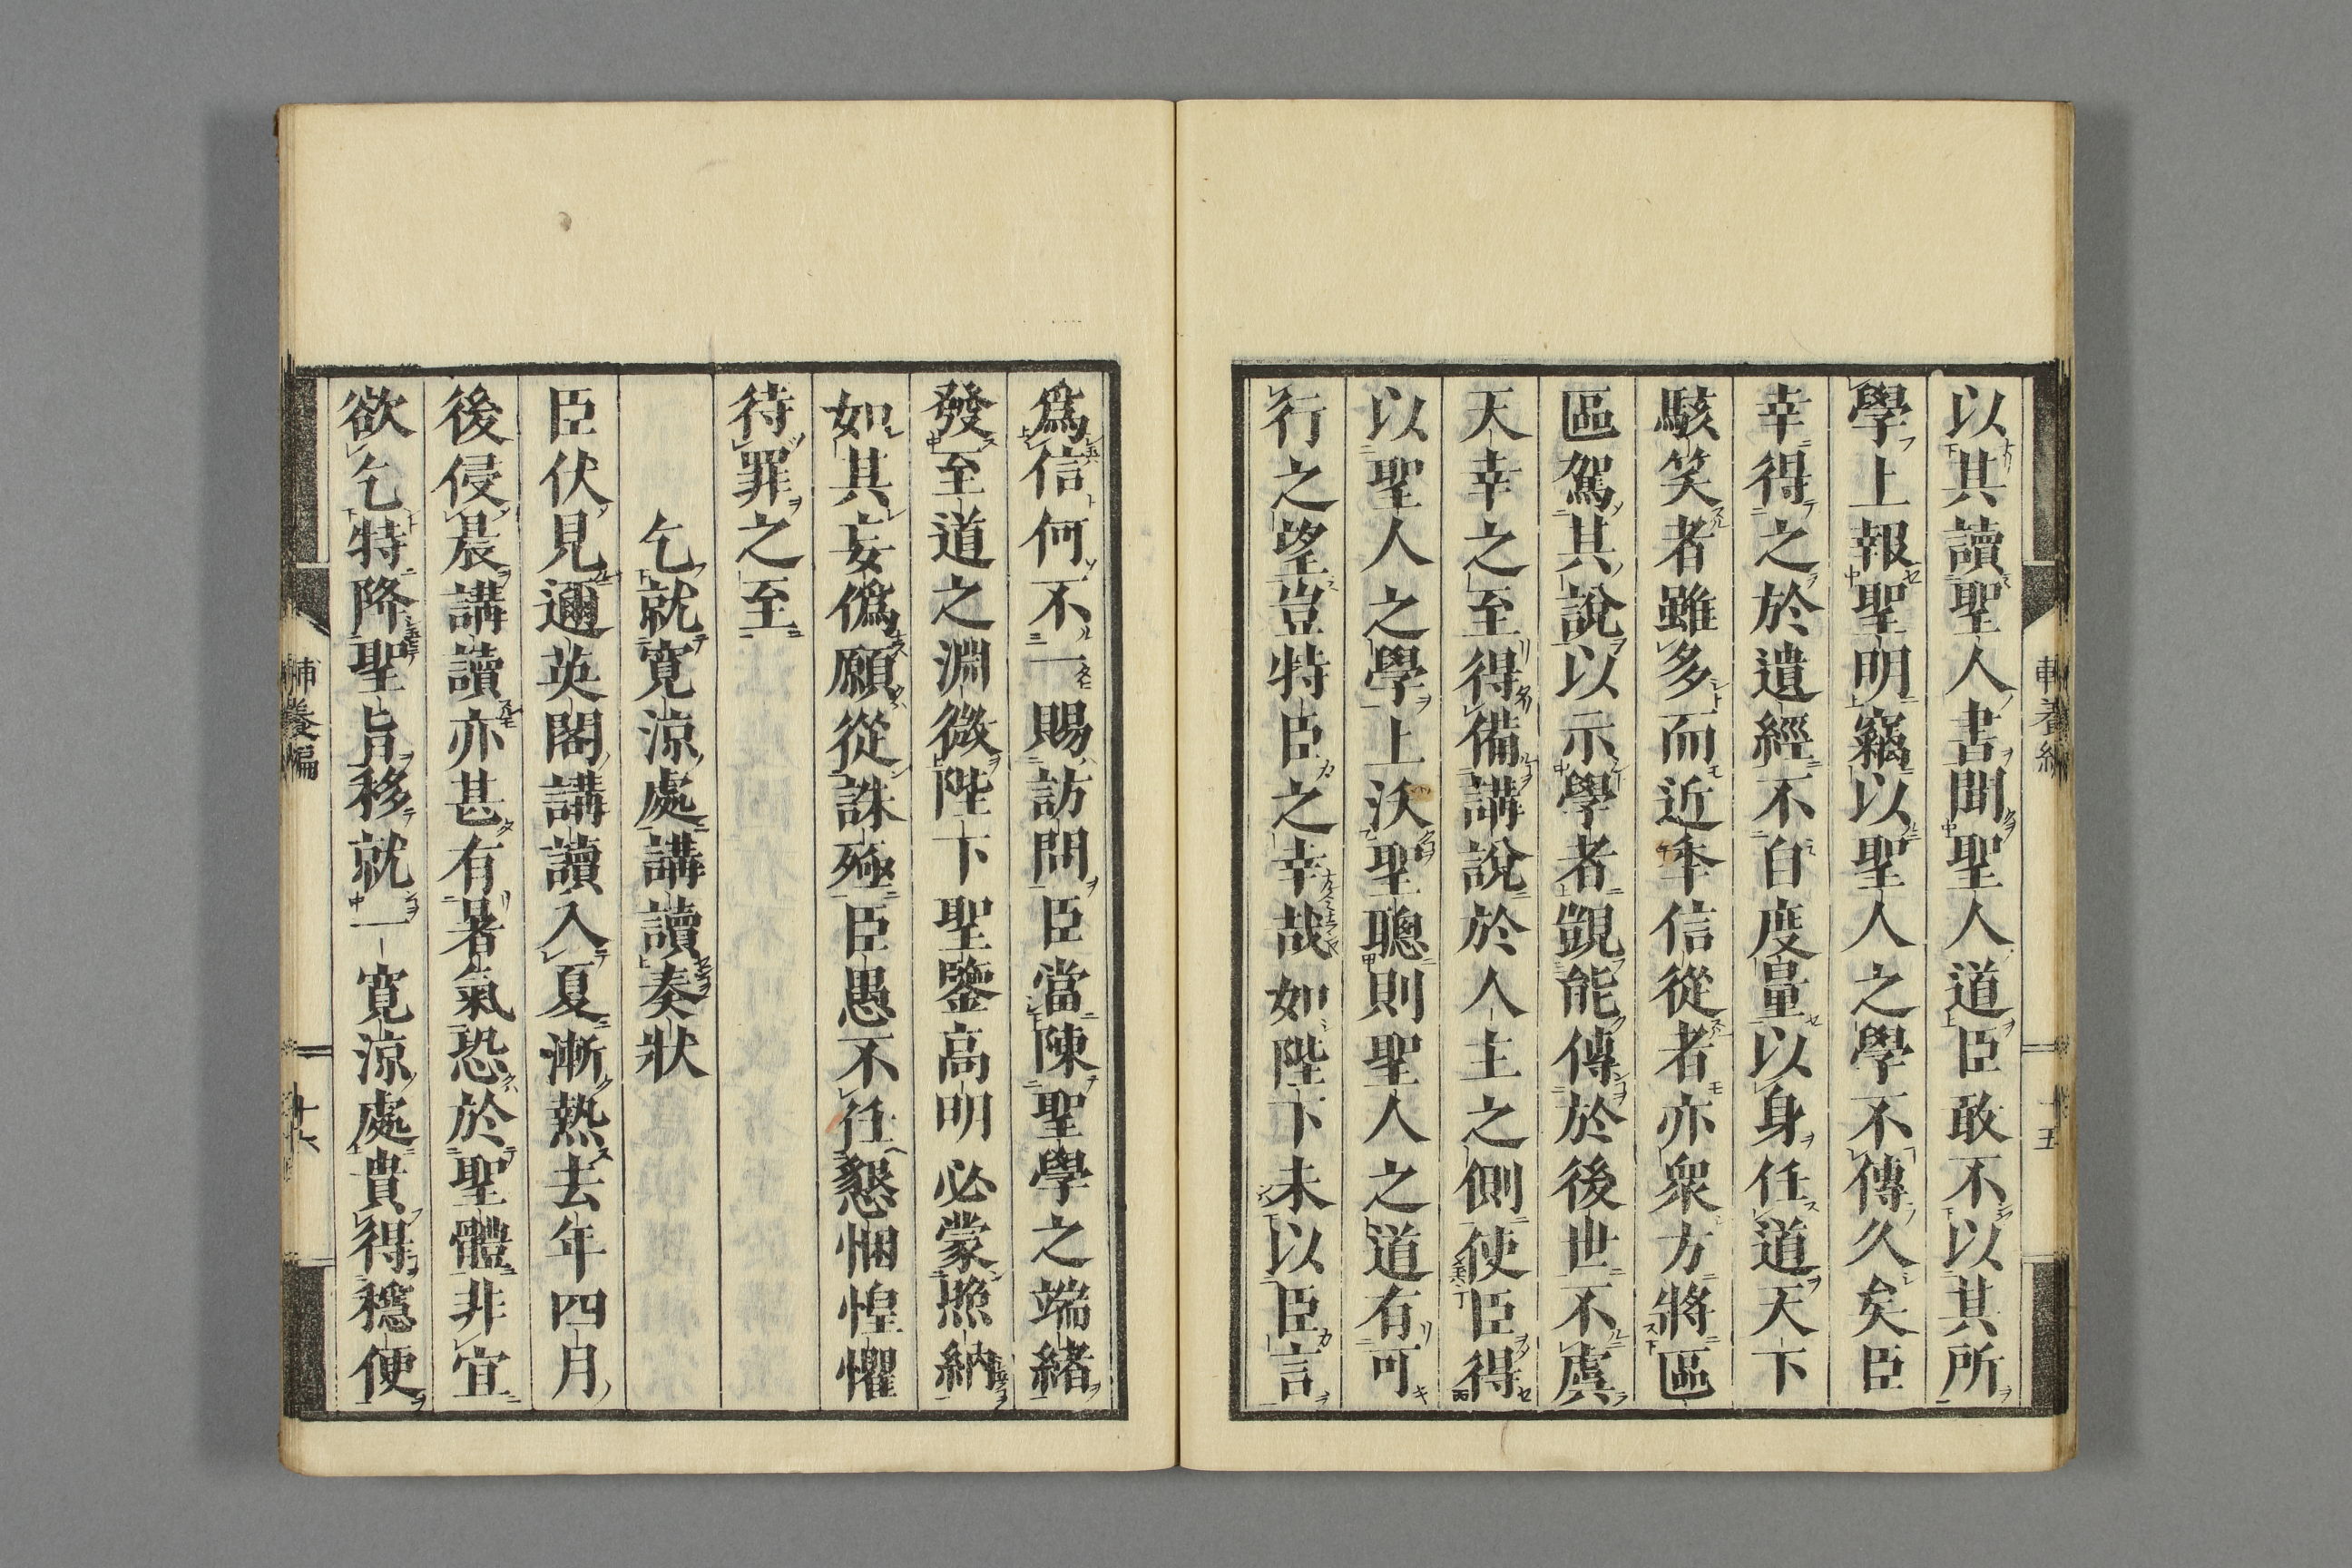 以其讀聖人書聞聖人道臣敢不以其所
學上報聖明竊以聖人之學不傳久矣臣
幸得之於遺經不自度量以身任道天下
駭笑者雖多而近年信從者亦衆方將區
區駕其說以示學者覬能傳於後世不虞
天幸之至得備講說於人主之側使臣得
以聖人之學上沃聖聰則聖人之道有可
行之望豈特臣之幸哉如陛下未以臣言
爲信何不一賜訪問臣當陳聖學之端緒
發至道之淵微陛下聖鑒高明必蒙照納
如其妄僞願從誅殛臣愚不任懇悃惶懼
待罪之至
乞就寬涼處講讀奏狀
臣伏見邇英閣講讀入夏漸熱去年四月
後侵晨講讀亦甚有暑氣恐於聖體非宜
欲乞特降聖旨移就一寬涼處貴得穩便
輔養編
十六